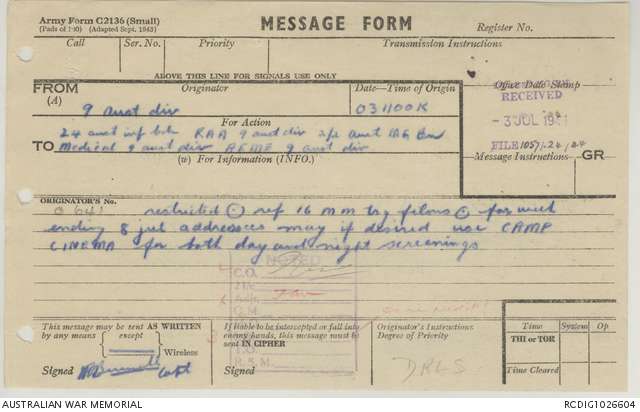 Army Form C2136 (Small)
(Pads of 100) (Adapted Sept. 1943)
MESSAGE FORM
Register No.
Call Ser. No. Priority Transmission Instructions
ABOVE THIS LINE FOR SIGNALS USE ONLY
FROM
(A)
Originator
9 aust div
Date—Time of Origin
031100K
Office Date Stamp
RECEIVED
-3 JUL 1944
FILE
TO
For Action
24 aust inf bde RAA 9 aust div 2/2 aust MG Bn
Medical 9 aust div AEME 9 aust div
(w) For Information (INFO.)
Message Instructions GR
ORIGINATOR'S No.
O 641 restricted ⊙ ref 16 mm trg films ⊙ for week
ending 8 jul addressees may if desired use CAMP
CINEMA for both day and night screenings
NOTED
C.O.
Adjt.
Q.M.
I.O.
R.S.M.
This message may be sent AS WRITTEN
by any means except Wireless
Signed Capt
If liable to be intercepted or fall into
enemy hands, this message must be
sent IN CIPHER
Signed
Originator's Instructions
Degree of Priority
DRLS
Time System Op
THI or TOR
Time Cleared
AUSTRALIAN WAR MEMORIAL
RCDIG1026604